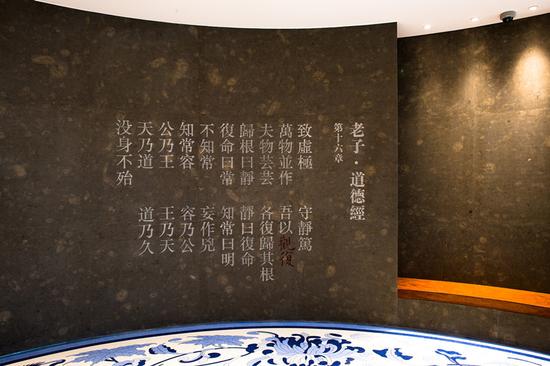 老子·道德經
第十六章
致虛極 守靜篤
萬物並作 吾以觀復
夫物芸芸 各復歸其根
歸根曰靜 靜曰復命
復命曰常 知常曰明
不知常 妄作凶
知常容 容乃公
公乃王 王乃天
天乃道 道乃久
没身不殆